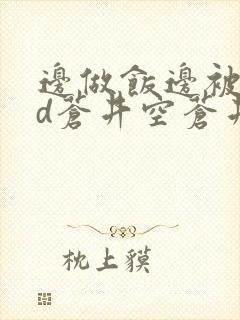 邊做飯邊被
d蒼井空蒼井
枕上貘